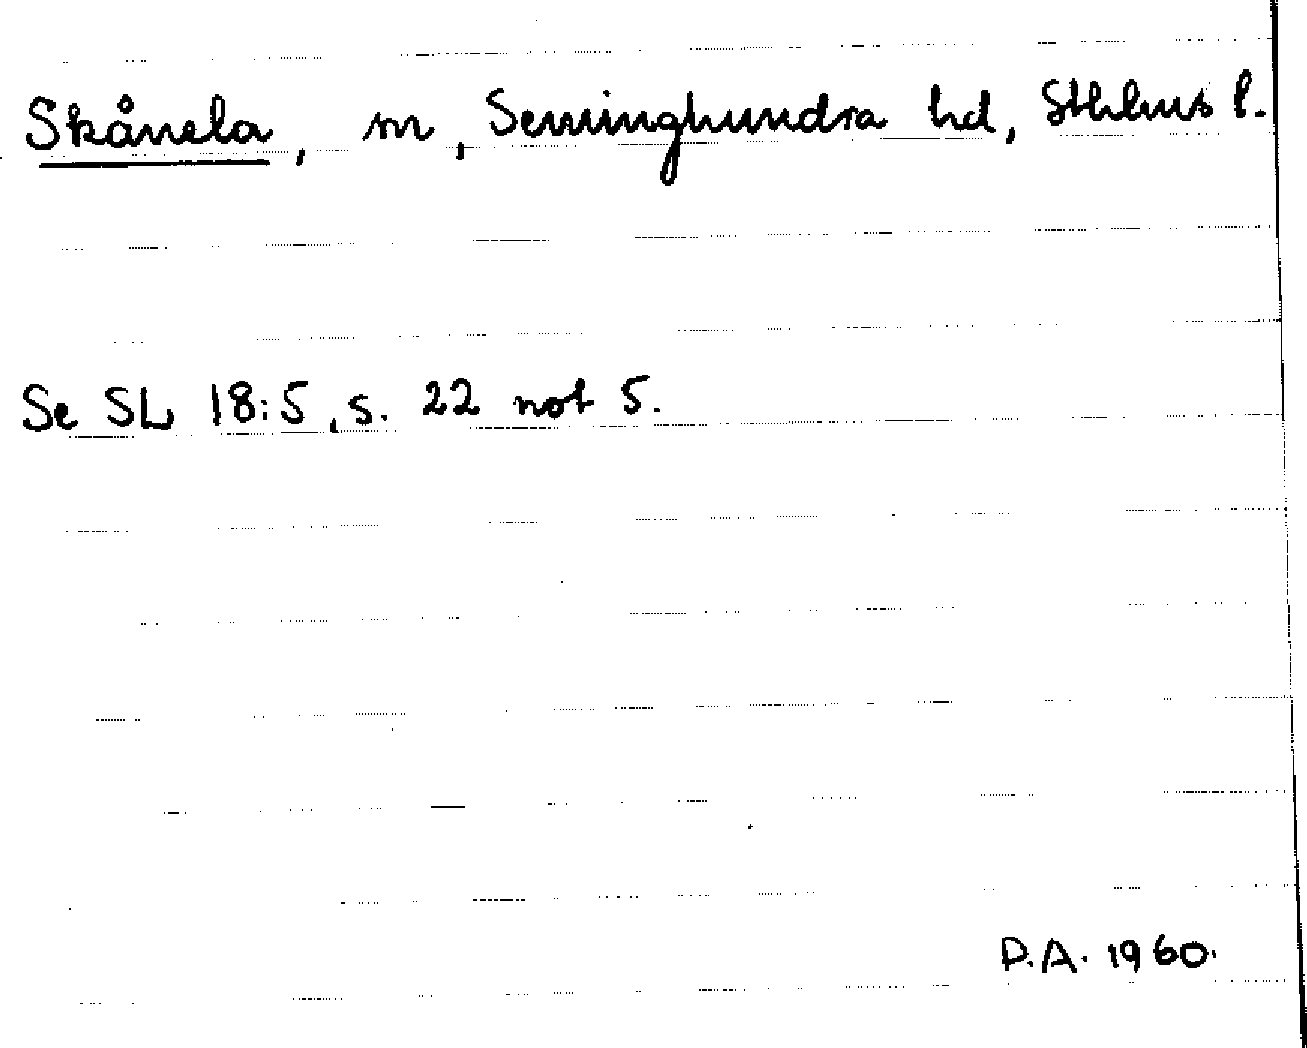 Skånela, sn, Seminghundra hd, Sthlms l.
Se SL 18:5, s. 22 not 5.
P.A. 1960.